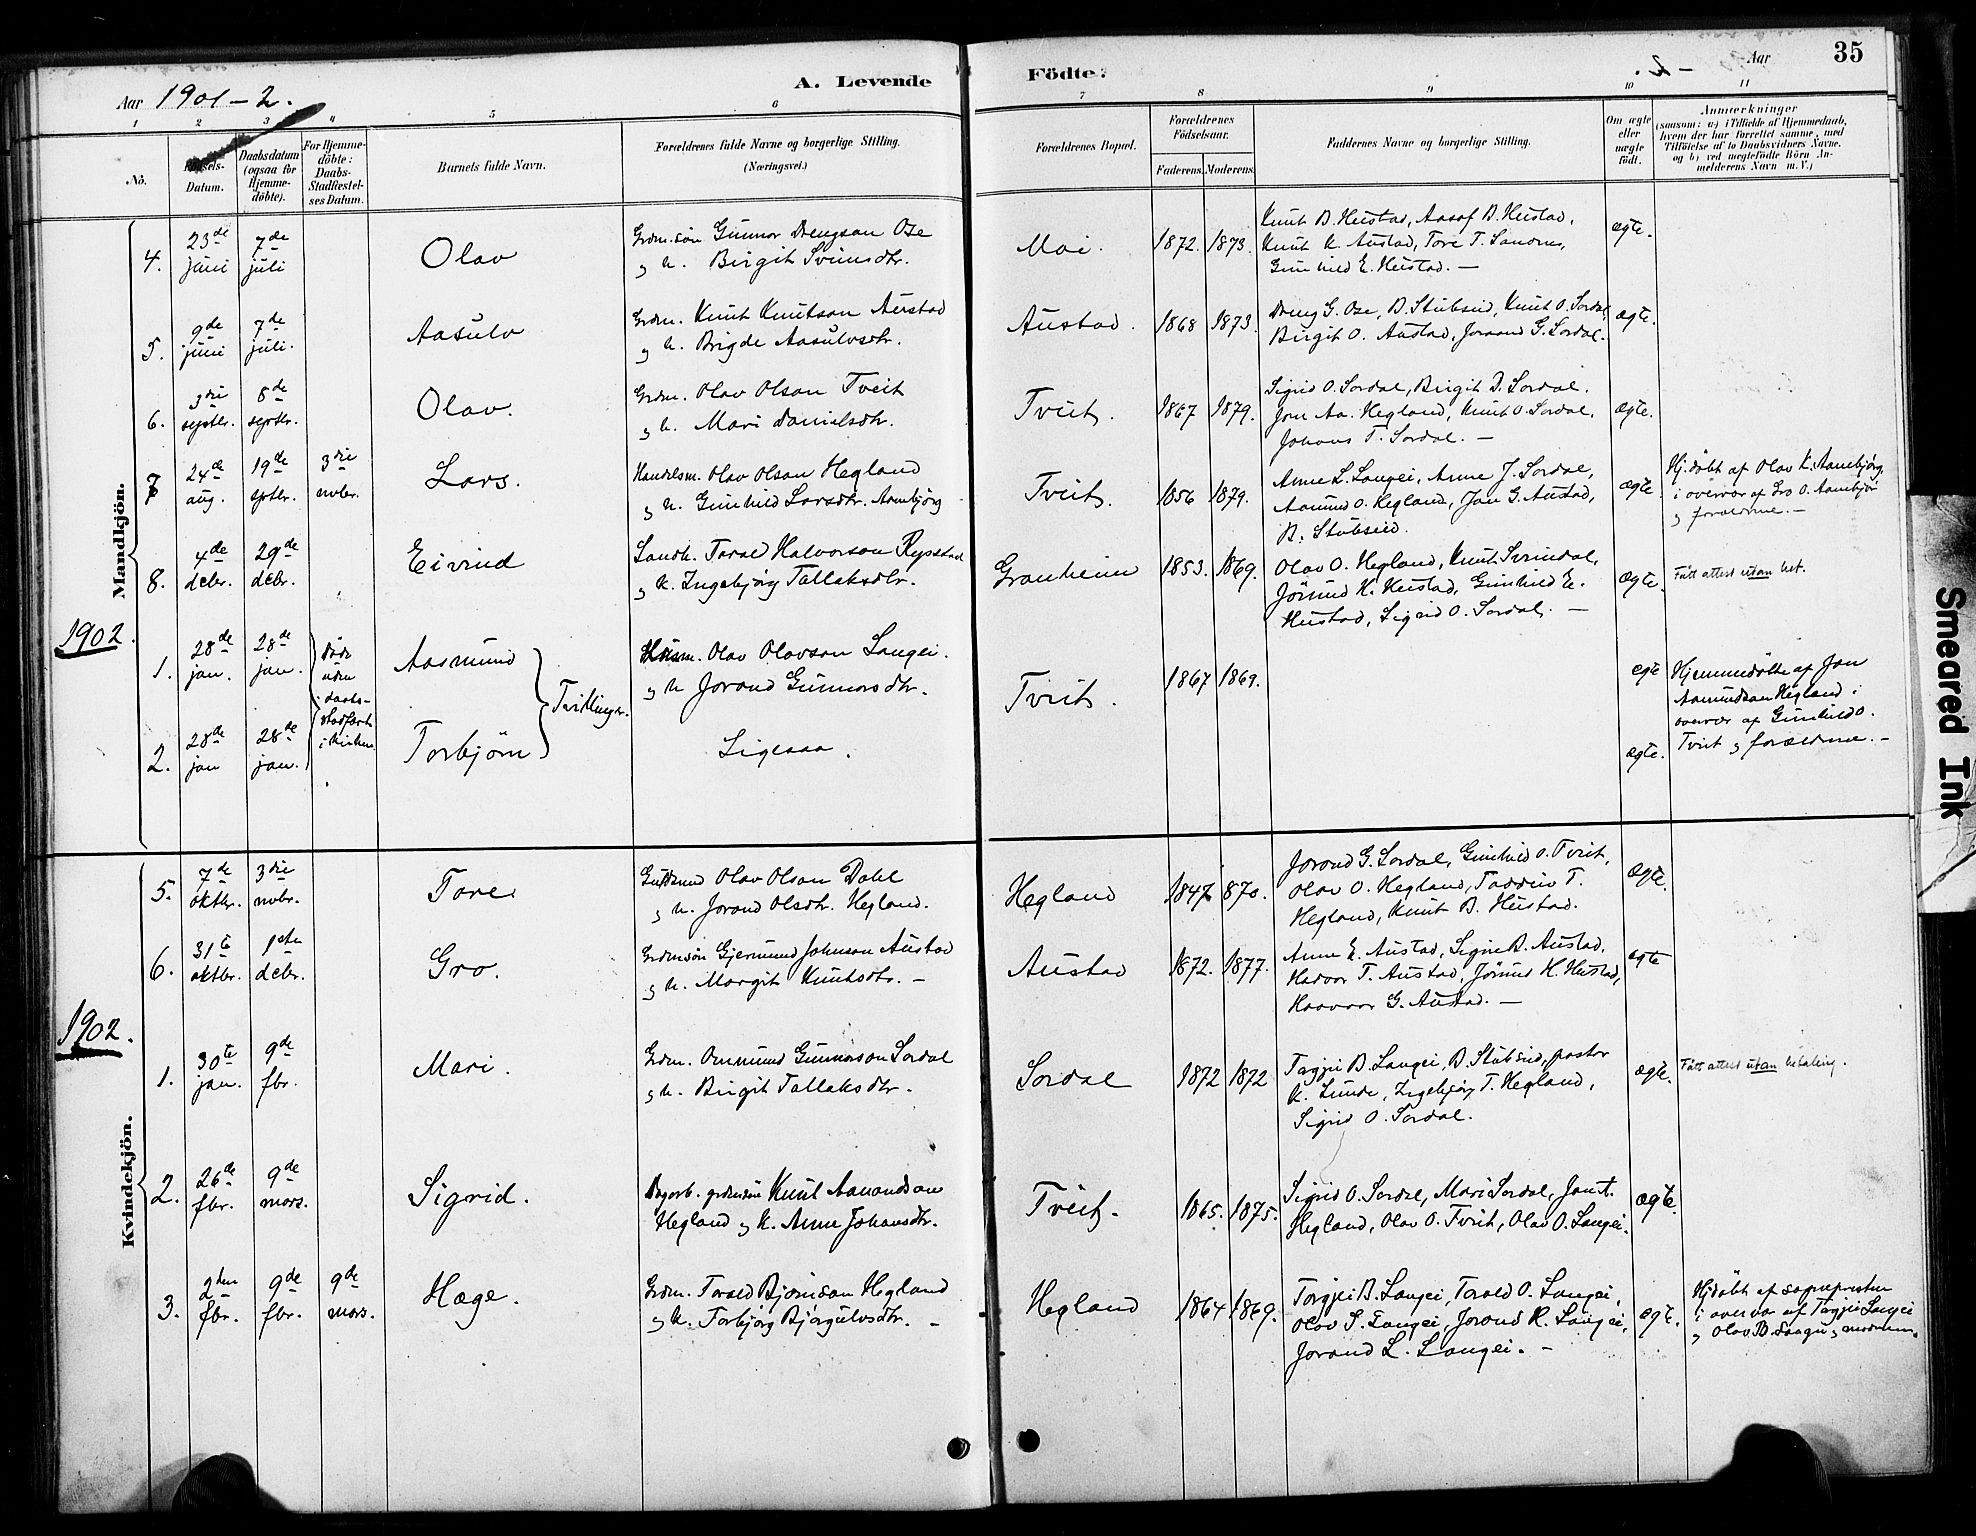 35
A. Levende
Födte:
Aar 1901-2.
-2. Aar
1 2 3 4 5 6 7 8 9 10 11
No.
Datum.
Daabsdatum (ogsaa for Hjemme-döbte).
For Hjemme-döbte: Daabs-Stadfæstel-ses Datum.
Barnets fulde Navn.
Forældrenes fulde Navne og borgerlige Stilling.
(Næringsvei.)
Forældrenes Bopæl.
Forældrenes Födselsaar.
Faderens. Moderens.
Faddernes Navne og borgerlige Stilling.
Om ægte eller uægte födt.
Anmærkninger
(saasom: a) i Tilfælde af Hjemmedaab,
hvem der har forrettet samme, med
Tilföielse af to Daabsvidners Navne.
og b) ved uægtefödte Börn An-
melderens Navn m. V.)
Mandkjön.
4. 23de juni 7de juli Olav Grdm.sön Gunnar Drengson Ose
og h. Birgit Sveinsdtr.
Moi. 1872. 1873. Knut B. Heistad, Aasof B. Heistad,
Knut K. Austad, Tore T.
Gunhild E. Heistad. —
ægte.
5. 9de juni 7de juli. Aasulv Grdm. Knut Knutson Austad
og h. Brigde Aasulvsdtr.
Austad. 1868 1873. Dreng G. Ose, B. Stubseid, Knut O. Sordal
Birgit O. Austad, Joraand G. Sordal.
ægte.
6. 3die septbr. 8de septbr. Olav. Grdm. Olav Olson Tveit
og h. Mari Danielsdtr.
Tveit. 1867 1879. Sigrid O. Sordal, Birgit D. Sordal.
Jon Aa. Hegland, Knut O. Sordal,
Johans T. Sordal. —
ægte.
7 24de aug. 19de sptbr. 3die novbr. Lars. Handelsm. Olav Olson Hegland
og h. Gunhild Larsdtr. Aamebjörg
Tveit. 1856 1879. Anne L. Langei, Anne J. Sordal,
Aamund O. Hegland, Jon G. Austad,
B. Stubseid.
ægte. Hj.döbt af Olav K. Aamebjörg.
i overvær af Gro O. Aamebjör
og forældrene. —
8. 4de debr. 29de debr. Eivind Landh. Tarald Halvorson Rysstad
og k. Ingebjörg Tallaksdtr.
Granheim 1853. 1869. Olav O. Hegland, Knut Sveindal,
Jörund K. Heistad, Gunhild E.
Heistad, Sigrid O. Sordal. —
ægte. Fått attest utan bet.
1902.
1. 28de jan. 28de jan. döde uden daabs-stadfæst. i kirken Aasmund Tvillinger. Husm. Olav Olavson Langei.
og h Jorand Gunnarsdtr.
Tveit. 1867 1869.
egte Hjemmedöbte af Jon
Aamundson Hegland i
overvær af Gunhild O.
Tveit og forældrene. —
2. 28de jan 28de jan. Torbjörn Ligesaa.
ægte.
Kvindekjön.
5. 7de oktbr. 3die novbr. Tore Olav Olson Dahl
og h. Jorand Olsdtr. Hegland.
Hegland 1847 1870. Jorand G. Sordal, Gunhild O. Tveit,
Olav O. Hegland, T.
Hegland, Knut B. Heistad.
ægte.
6. 31te oktbr. 1ste debr. Gro. Grdmsön Gjermund Johnson Austad
og h. Margit Knutsdtr. —
Austad 1872. 1877. Anne E. Austad, Signe B. Austad,
Havor T. Austad, Jörund K. Heistad,
Haavor G. Austad. —
ægte
1902.
1. 30te jan. 9de fbr. Mari. Grdm. Ommund Gunnarson Sordal
og h. Birgit Tallaksdtr.
Sordal 1872 1872 Targjei B. Langei, B. Stubseid, pastor
K. Lunde, Ingebjörg T. Hegland,
Sigrid O. Sordal.
ægte. Fått attest utan betaling.
2. 26de fbr. 9de mars. Sigrid. Dagarb. grdmsön Knut Aanondson
Hegland og K. Anne Johansdtr.
Tveit. 1865. 1875. Sigrid O. Sordal, Mari Sordal, Jon A.
Hegland, Olav O. Tveit, Olav O. Langei.
ægte.
3. 2den fbr. 9de fbr. 9de mars. Hæge. Grdm. Torald Björnson Hegland
og k. Torbjörg Björgulvsdtr. —
Hegland 1864 1869. Torgjei B. Langei, Torald O. Langei,
Olav S. Langei, Jorand R. Langei,
Jorand L. Langei. —
ægte. Hj.döbt af sognepresten
i overvær af Targjei Langei
og Olav B. Langei og moderen.
Smeared Ink